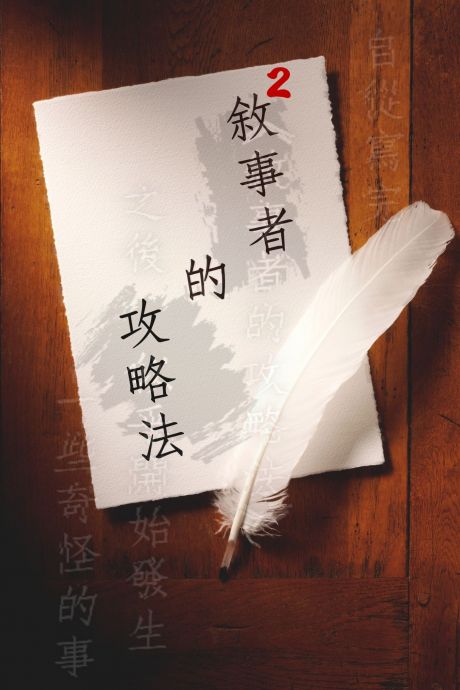 2
敘事者
的
攻略法
自從寫完
敘事者的攻略法
之後
開始發生
一些奇怪的事